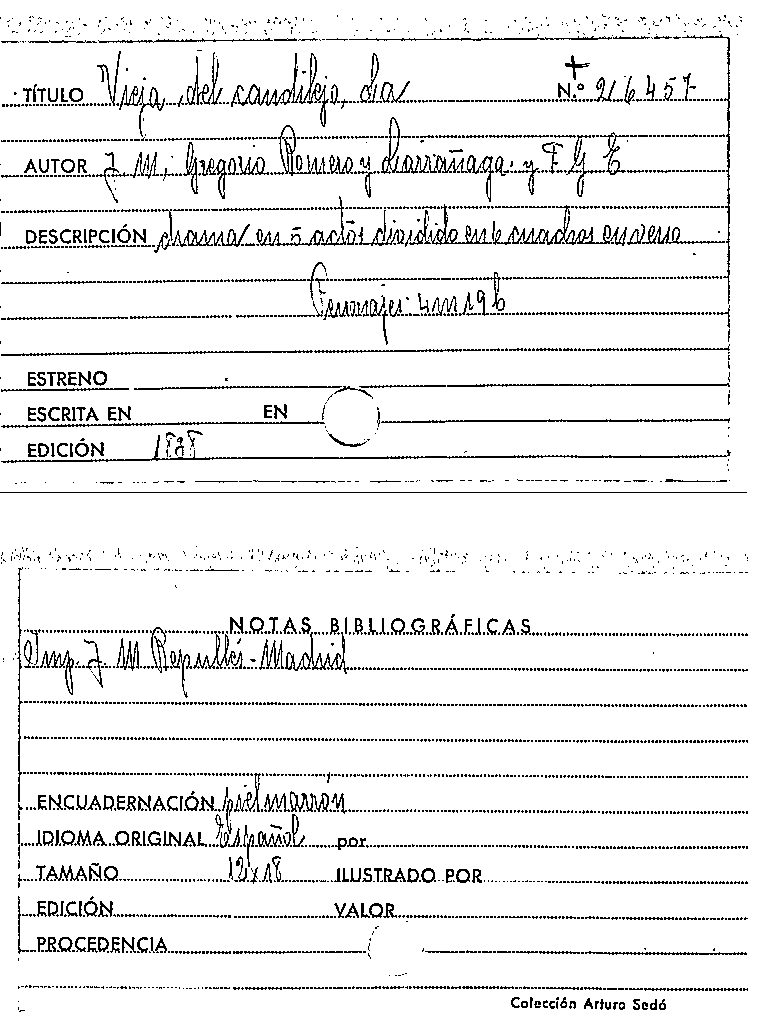 TÍTULO Vieja del candilejo, La N.º 216457
AUTOR J M, Gregorio Romero y Larrañaga y F G E
DESCRIPCIÓN drama en 5 actos dividido en 6 cuadros en verso
Personajes 4m 19h
ESTRENO
ESCRITA EN EN
EDICIÓN 1838
NOTAS BIBLIOGRÁFICAS
Imp. J. M Repullés - Madrid
ENCUADERNACIÓN piel marrón
IDIOMA ORIGINAL Español por
TAMAÑO 12x18 ILUSTRADO POR
EDICIÓN VALOR
PROCEDENCIA
Colección Arturo Sedó